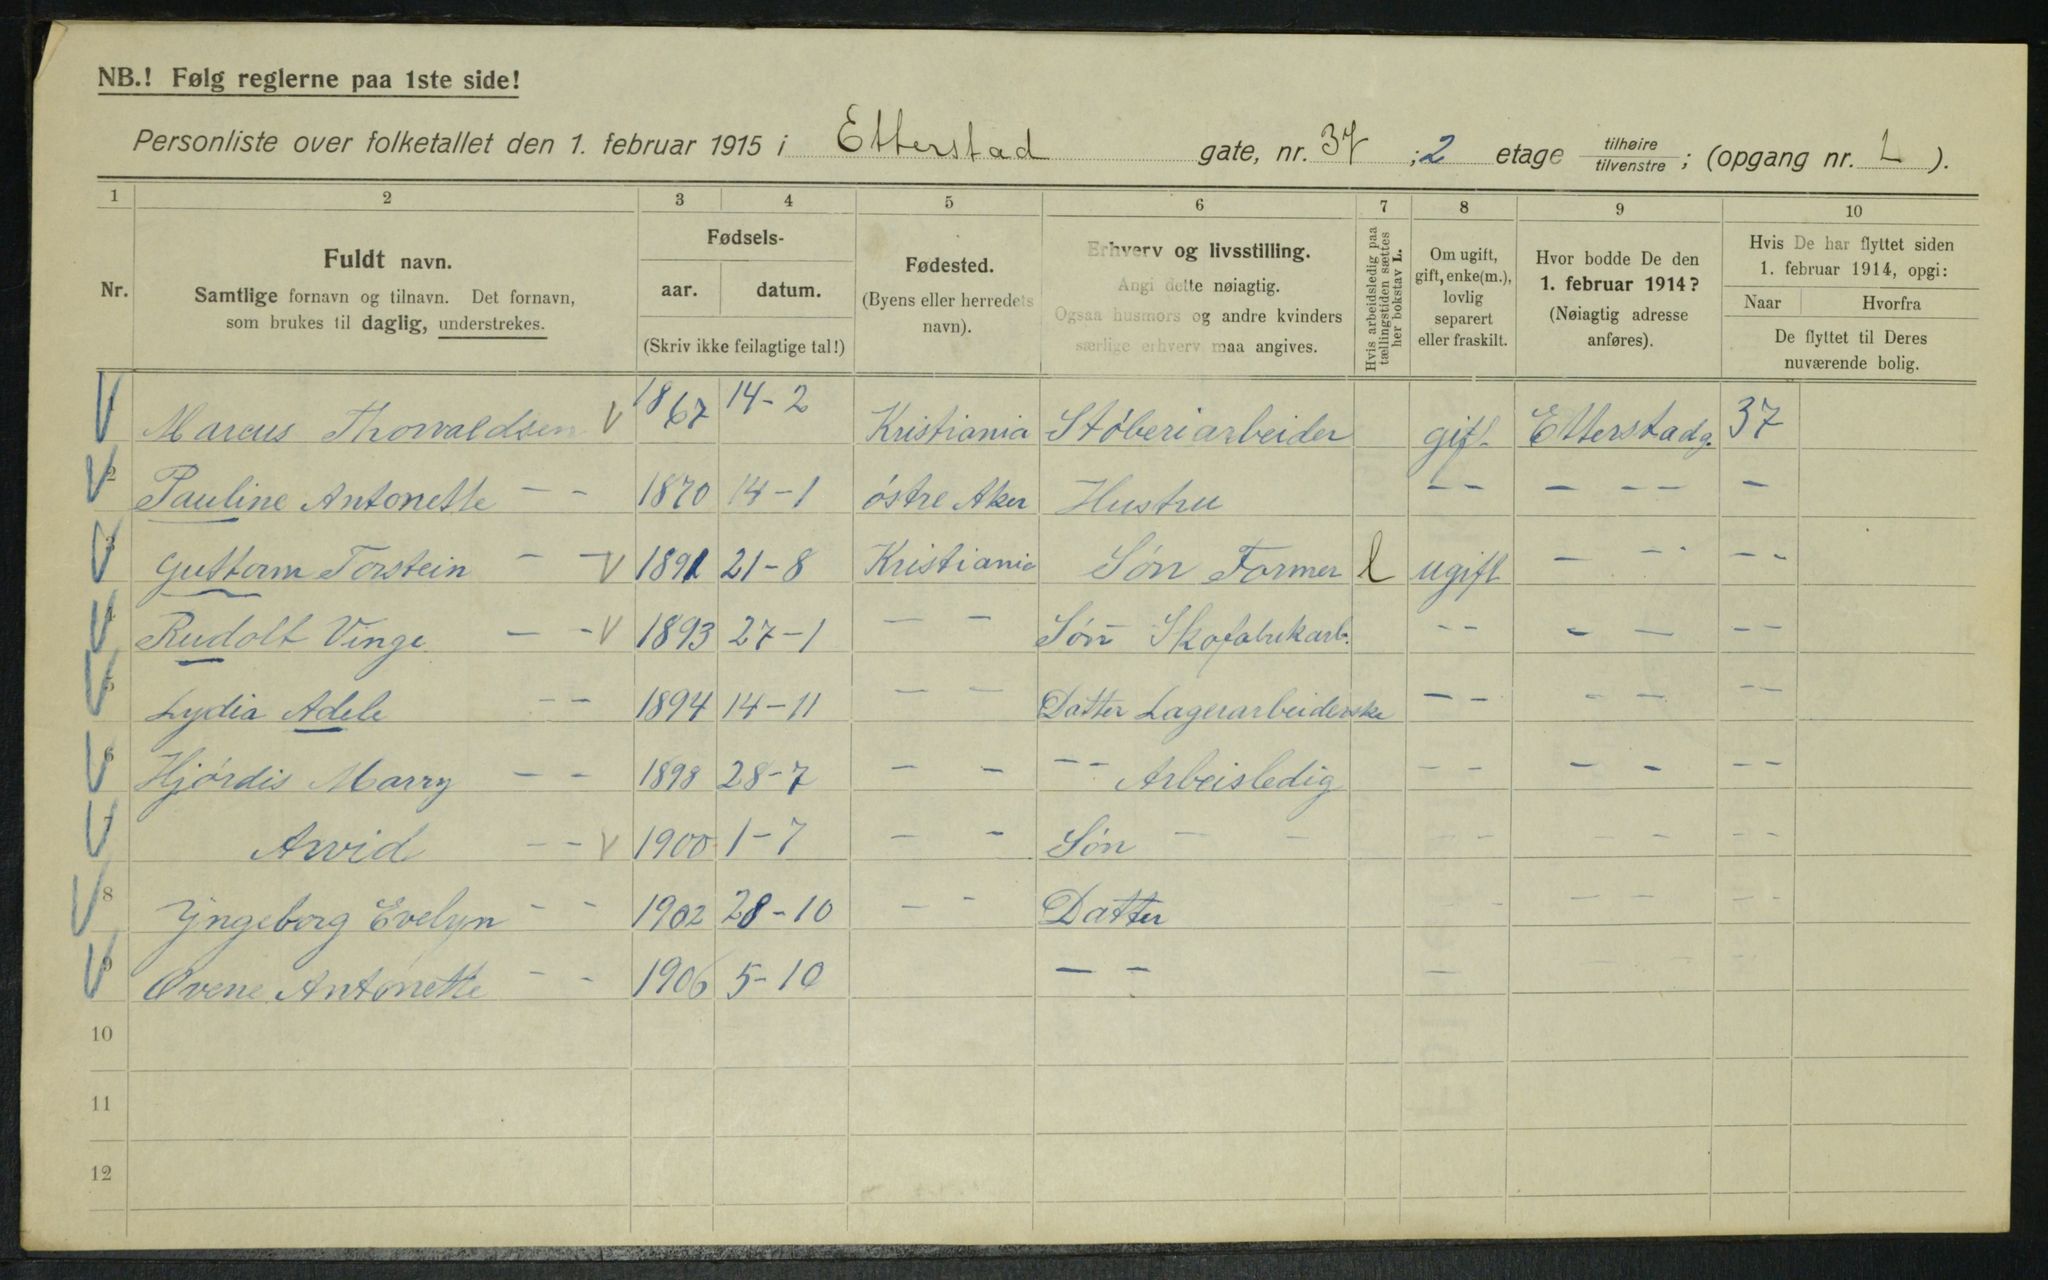 NB.! Følg reglerne paa 1ste side!
Personliste over folketallet den 1. februar 1915 i Etterstad gate, nr. 37 ; 2 etage tilhøire / tilvenstre ; (opgang nr. 1 ).
1 2 3 4 5 6 7 8 9 10
Nr.
Fuldt navn.
Samtlige fornavn og tilnavn. Det fornavn,
som brukes til daglig, understrekes.
Fødsels-
aar. datum.
(Skriv ikke feilagtige tal!)
Fødested.
(Byens eller herredets
navn).
Erhverv og livsstilling.
Angi dette nøiagtig.
Ogsaa husmors og andre kvinders
særlige erhverv maa angives.
Hvis arbeidsledig paa
tællingstiden sættes
her bokstav L.
Om ugift,
gift, enke(m.),
lovlig
separert
eller fraskilt.
Hvor bodde De den
1. februar 1914?
(Nøiagtig adresse
anføres).
Hvis De har flyttet siden
1. februar 1914, opgi:
Naar Hvorfra
De flyttet til Deres
nuværende bolig.
1 Marcus Thorvaldsen V 1867 14-2 Kristiania Støberiarbeider gift Etterstadg. 37
2 Pauline Antonette - - 1870 14-1 østre Aker Hustru - - - - - -
3 Guttorm Torstein - - V 1891 21-8 Kristiania Søn Former l ugift - - - -
4 Rudolt Vinge - - V 1893 27-1 - - Søn Skofabrikarb. - - - - - -
5 Lydia Adele - - 1894 14-11 - - Datter Lagerarbeiderske - - - - - -
6 Hjørdis Marry - - 1898 28-7 - - - - Arbeisledig - - - - - -
7 Arvid - - V 1900 1-7 - - Søn - - - - - - - -
8 Yngeborg Evelyn - - 1902 28-10 - - Datter - - - - - -
9 Ovene Antonette - - 1906 5-10 - - - - - - -
10
11
12